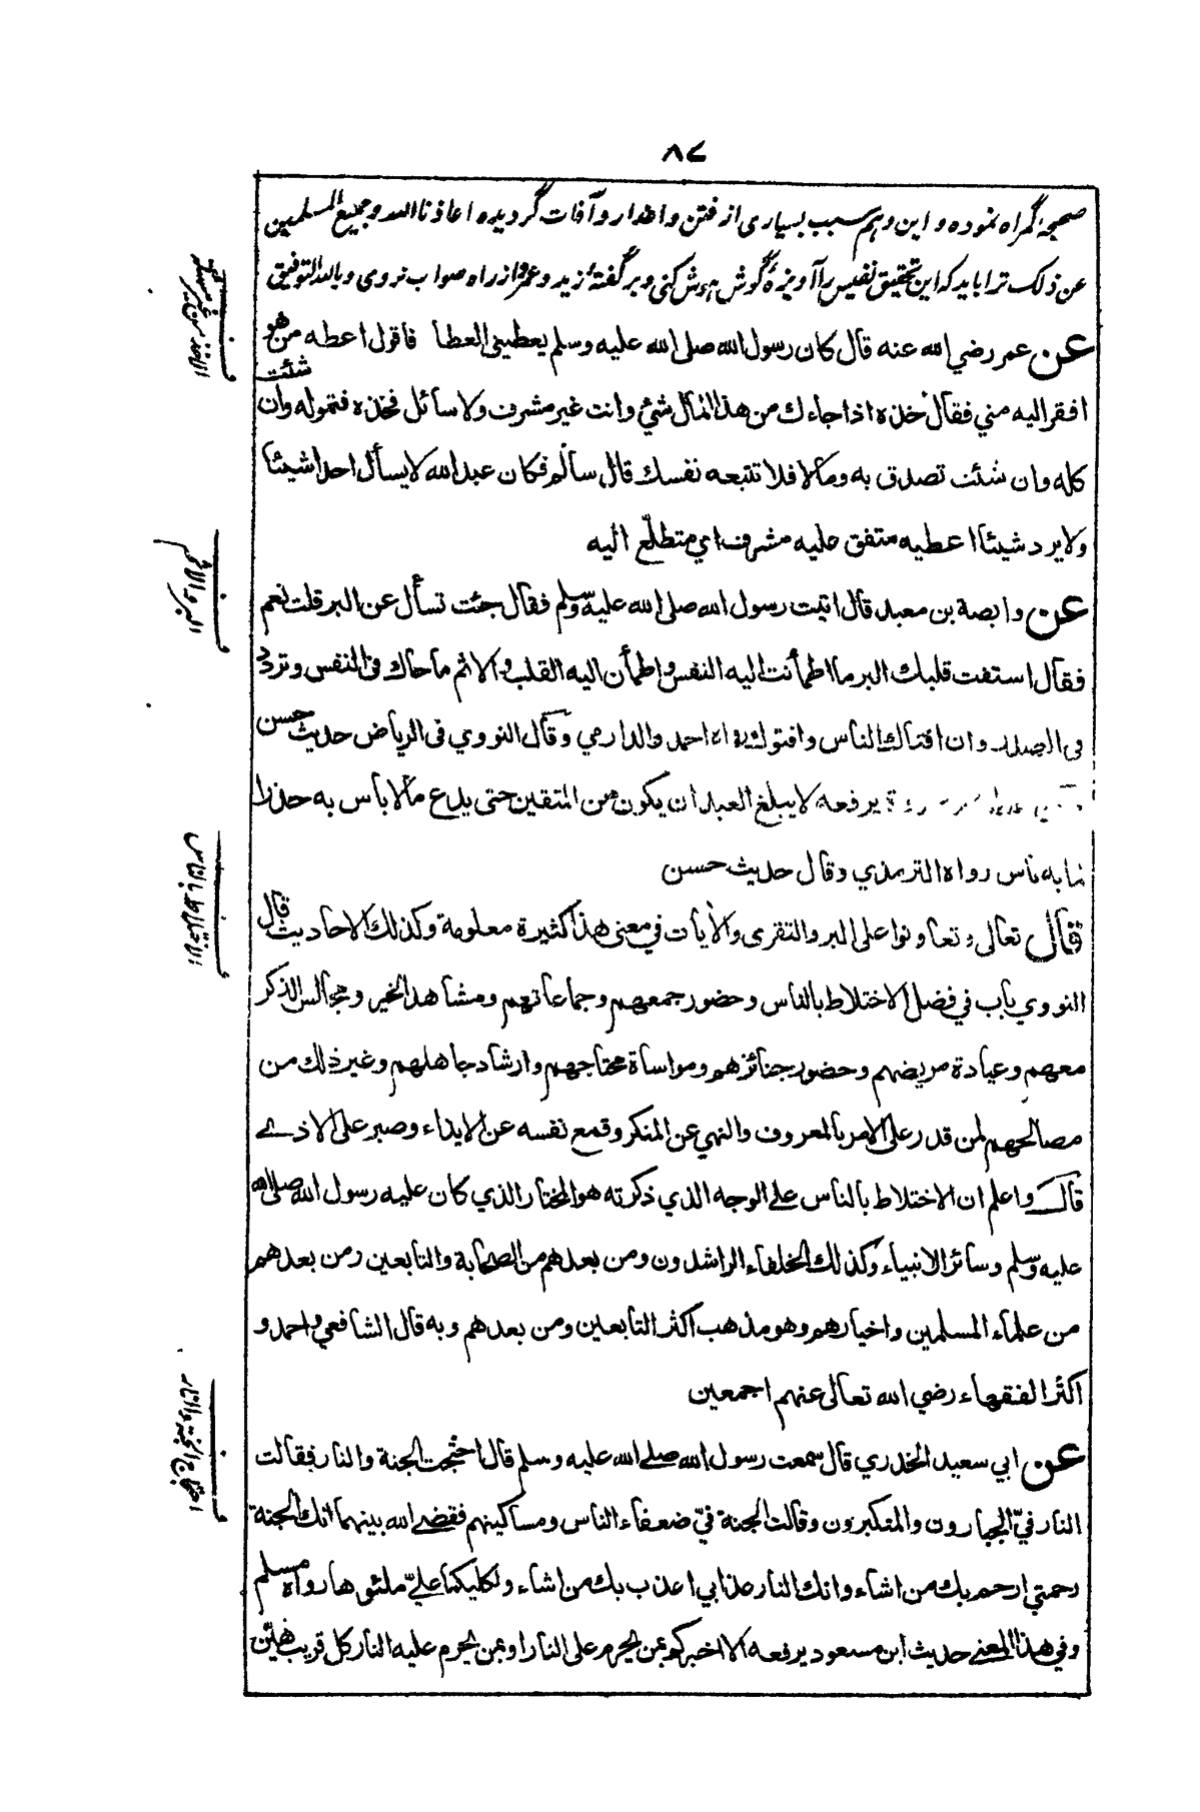 ٨٧
صحیحهٔ گمراه نموده و این وهم سبب بسیاری از فتن و اهدار و آفات گردیده اعاذنا الله وجميع المسلمين
عن ذلك ترا باید که این تحقیق نفیس را آویزهٔ گوش هوش کنی و بر گفتهٔ زید و عمرو از راه صواب نروی و بالله التوفیق
عن عمر رضي الله عنه قال كان رسول الله صلى الله عليه وسلم يعطيني العطا فاقول اعطه من هو
افقر اليه مني فقال خذه اذا جاءك من هذا المال شيئ وانت غير مشرف ولا سائل فخذه فتموله وان شئت
كله وان شئت تصدق به ومالا فلا تتبعه نفسك قال سالم فكان عبد الله لا يسأل احدا شيئا
ولا يرد شيئا اعطيه متفق عليه مشرف اي متطلّع اليه
عن وابصة بن معبد قال اتيت رسول الله صلى الله عليه وسلم فقال جئت تسأل عن البر قلت نعم
فقال استفت قلبك البر ما اطمأنت اليه النفس واطمأن اليه القلب والاثم ما حاك في النفس وتردد
في الصدر وان افتاك الناس وافتوك رواه احمد والدارمي وقال النووي في الرياض حديث حسن
يرفعه لا يبلغ العبد ان يكون من المتقين حتى يدع ما لا بأس به حذرا
مما به بأس رواه الترمذي وقال حديث حسن
قال تعالى وتعاونوا على البر والتقوى والأيات في معنى هذا كثيرة معلومة وكذلك الاحاديث قال
النووي باب في فضل الاختلاط بالناس وحضور جمعهم وجماعاتهم ومشاهد الخير ومجالس الذكر
معهم وعيادة مريضهم وحضور جنائزهم ومواساة محتاجهم وارشاد جاهلهم وغير ذلك من
مصالحهم لمن قدر على الامر بالمعروف والنهي عن المنكر وقمع نفسه عن الايذاء وصبر على الاذے
قال واعلم ان الاختلاط بالناس على الوجه الذي ذكرته هو المختار الذي كان عليه رسول الله صلى الله
عليه وسلم وسائر الانبياء وكذلك الخلفاء الراشدون ومن بعدهم من الصحابة والتابعين ومن بعدهم
من علماء المسلمين واخيارهم وهو مذهب اكثر التابعين ومن بعدهم وبه قال الشافعي واحمد و
اكثر الفقهاء رضي الله تعالى عنهم اجمعين
عن ابي سعيد الخدري قال سمعت رسول الله صلے الله عليه وسلم قال احتجت الجنة والنار فقالت
النار فيّ الجبارون والمتكبرون وقالت الجنة فيّ ضعفاء الناس ومساكينهم فقضے الله بينهما انك الجنة
رحمتي ارحم بك من اشاء وانك النار عذابي اعذب بك من اشاء ولكليكما عليّ ملئوها رواه مسلم
وفي هذا المعنے حديث ابن مسعود يرفعه الا اخبركم بمن يحرم على النار او بمن يحرم عليه النار كل قريب هيّن
البر والاثم
الاختلاط بالناس
احتجاج الجنة والنار